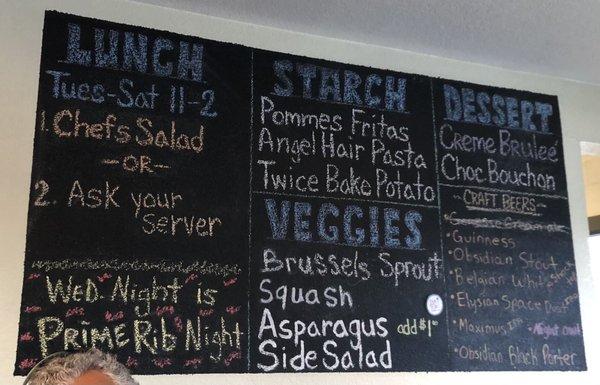 LUNCH
Tues-Sat 11-2
1. Chefs Salad
-OR-
2. Ask your
server
Wed. Night is
Prime Rib Night
STARCH
Pommes Fritas
Angel Hair Pasta
Twice Bake Potato
VEGGIES
Brussels Sprout
Squash
Asparagus add $1
Side Salad
DESSERT
Creme Brulee
Choc Bouchon
CRAFT BEERS
Guinness
Obsidian Stout
Belgian White
Elysian Space Dust
Maximus
Obsidian Black Porter